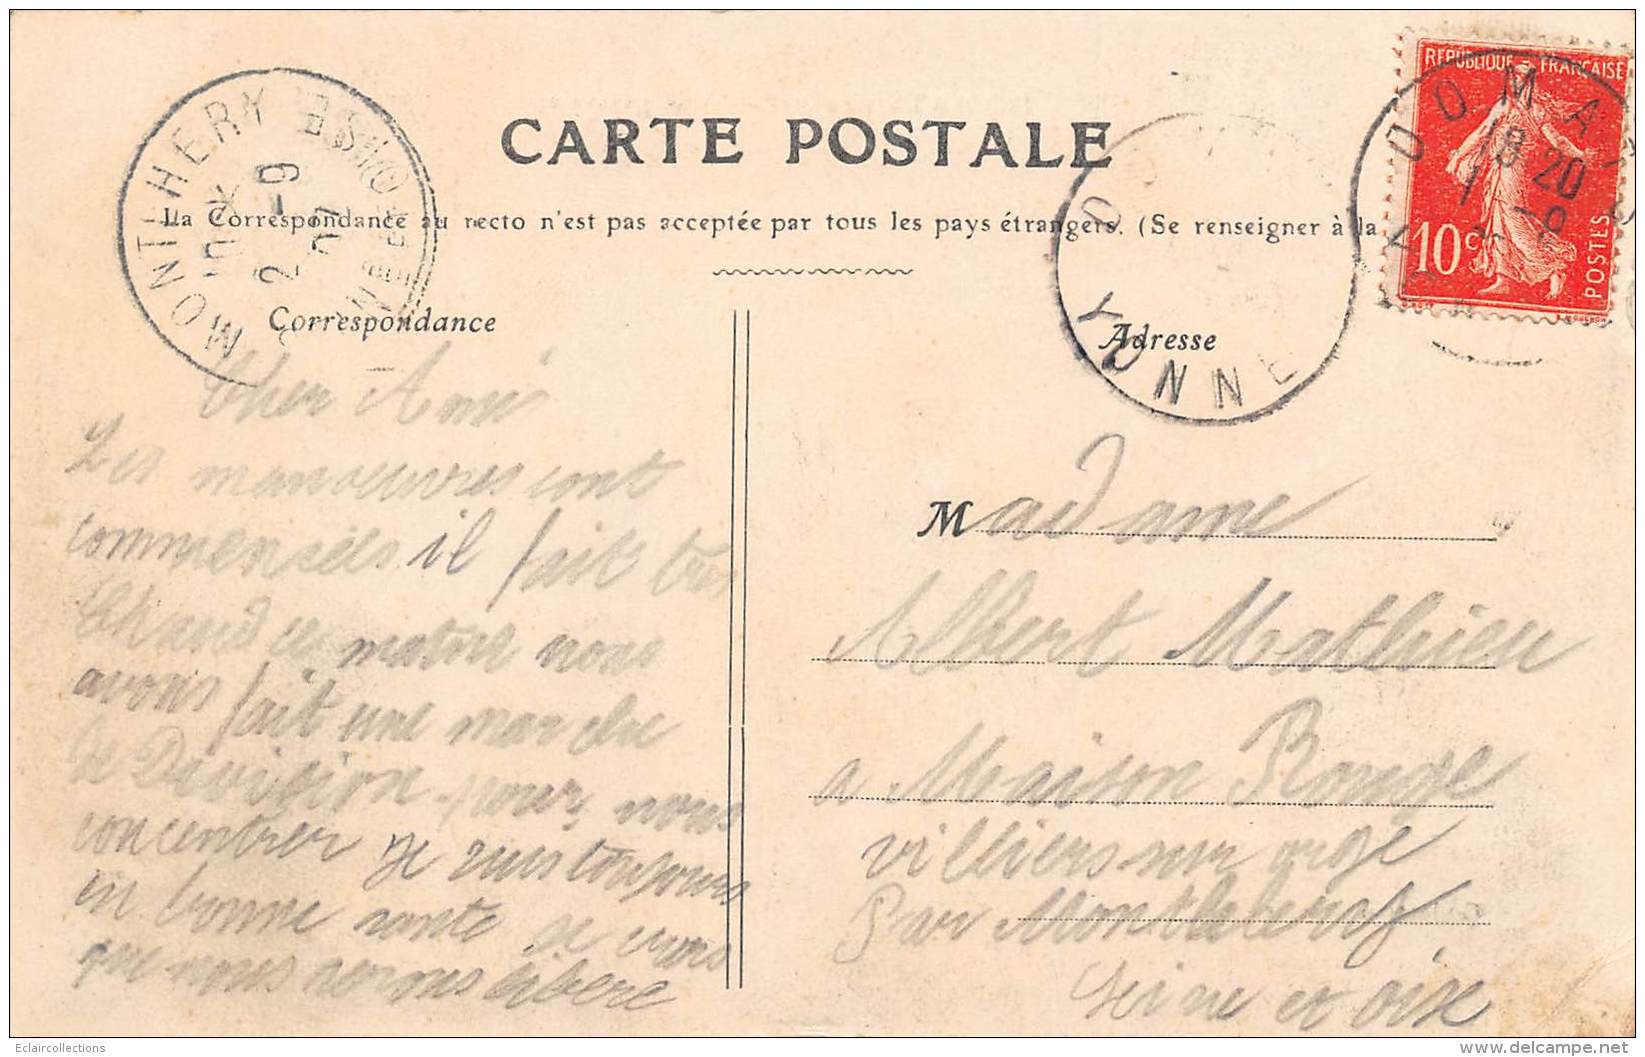 CARTE POSTALE
La Correspondance au recto n'est pas acceptée par tous les pays étrangers. (Se renseigner à la
Correspondance
Cher Amis
Les manoeuvres sont
commencées il fait tres
Chaud ce matin nous
avons fait une marche
de Division pour nous
concentrer je suis toujours
en bonne santé je crois
que nous serons libere
Adresse
Madame
Albert Mathieu
a Maison Rouge
villiers sur orge
Par Montlehery
Seine et oise
REPUBLIQUE FRANÇAISE
10c
POSTES
DOMATS
18 20
YONNE
MONTLHERY
SEINE ET OISE
2 -9
Eclaircollections
delcampe.net